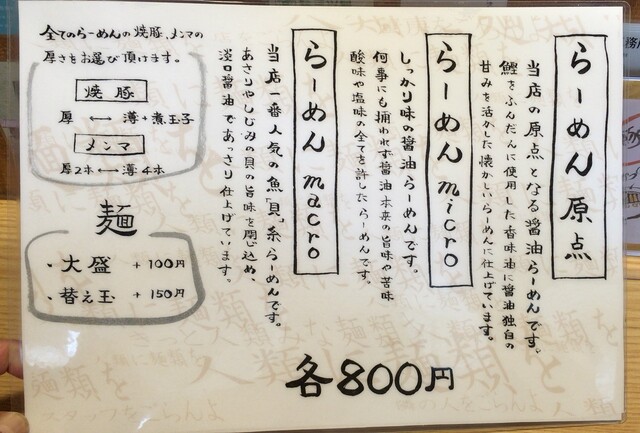 らーめん原点
当店の原点となる醤油らーめんです。
鰹をふんだんに使用した香味油に醤油独自の
甘みを活かした懐かしいらーめんに仕上げています。
らーめん micro
しっかり味の醤油らーめんです。
何事にも捕われず醤油本来の旨味や苦味
酸味や塩味の全てを許したらーめんです。
らーめん macro
当店一番人気の魚「貝」系らーめんです。
あさりやしじみの貝の旨味を閉じ込め、
淡口醤油であっさり仕上げています。
全てのらーめんの焼豚、メンマの
厚さをお選び頂けます。
焼豚
厚 ⟷ 薄+煮玉子
メンマ
厚2本⟷薄4本
麺
・大盛 +100円
・替え玉 +150円
各800円